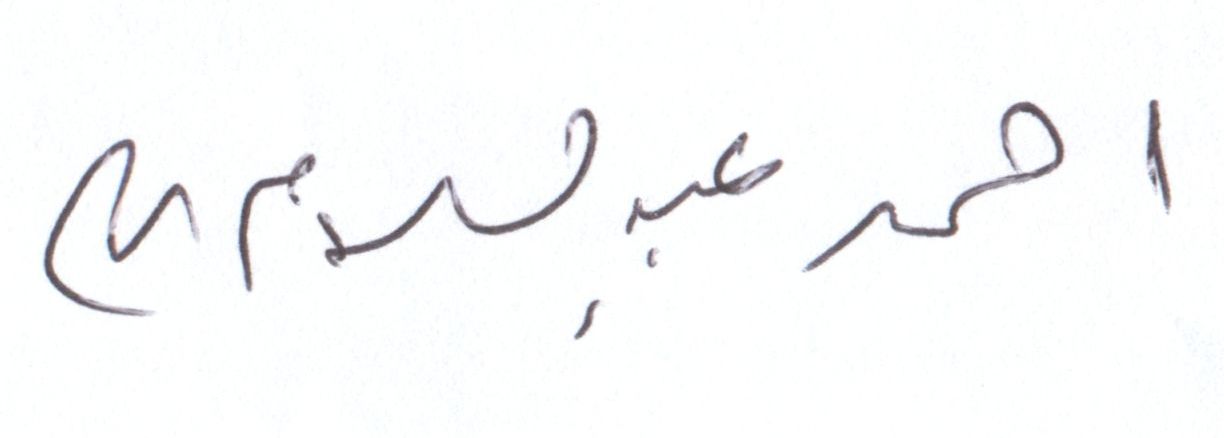 احمد عبد السلام